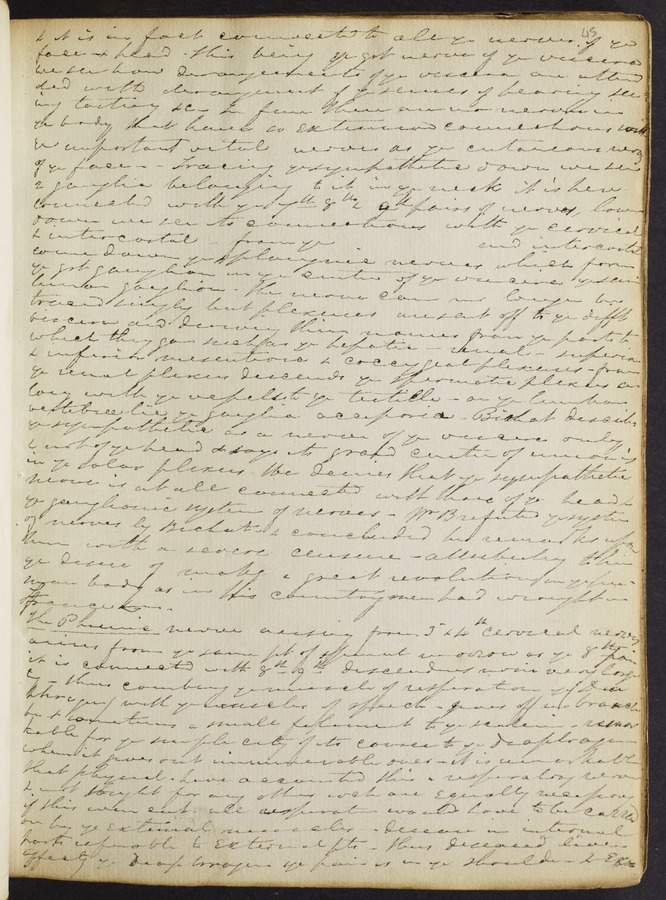 45
& it is in fact connected to all ye nerves of ye
face & head. This being ye gt nerve of ye viscera
we see how derangements of ye viscera are atten
ded with derangement of ye senses of hearing see
ing tasting &c. In fine there are no nerves in
ye body that have so extensive connections with
important vital nerves as ye cutaneous nerves
of ye face - Tracing ye sympathetic down we see
2 ganglia belonging to it in ye neck it is here
connected with ye 7th 8th & 9th pairs of nerves, lower
down we see its connections with ye cervical
& intercostal - from ye and intercostal
come down ye splanchnic nerves which form
ye gt ganglion in ye centre of ye viscera ye semi
lunar ganglion. The nerve can no longer be
traced singly but plexuses are sent off to ye difft
viscera and deriving their names from ye parts to
which they go such as ye hepatic - renal - superior
& inferior mesenteric & coccygeal plexuses - from
ye renal plexus descends ye spermatic plexus
with ye vessels to ye testicle - on ye lumbar
vertebrae lie ye ganglia accessoria - Bichat describes
ye sympathetic as a nerve of ye viscera only
& not of ye head & says its grand centre of union is
in ye solar plexus. He denies that ye sympathetic
nerve is at all connected with those of ye head &
ye ganglionic system of nerves - Mr B refuted ye system
of nerves by Bichat & concluded his remarks upon
him with a severe censure - attributing to him
ye desire of making a great revolution in ye hu-
man body as in his countrymen had wrought in
France.
The Phrenic nerve arising from 3 & 4th cervical nerves
arises from ye same pt of spinal marrow as ye 8th pair
it is connected with 8th 9th descendens noni very large
ly - thus combining ye muscles of respiration ye Dia
phragm with ye muscles of speech - gives off no branch
but sometimes a small filament to ye - remar
kable for ye simplicity of its course to ye diaphragm
when it gives out innumerable ones - it is remarkable
that physiol. have accounted this a respiratory nerve
& not thought for any others wch are equally necessary
if this were cut all respiration would have to be carried
on by ye external muscles - disease in internal
parts referable to external pts - thus diseased liver
affects ye diaphragm ye pain is in ye shoulder &